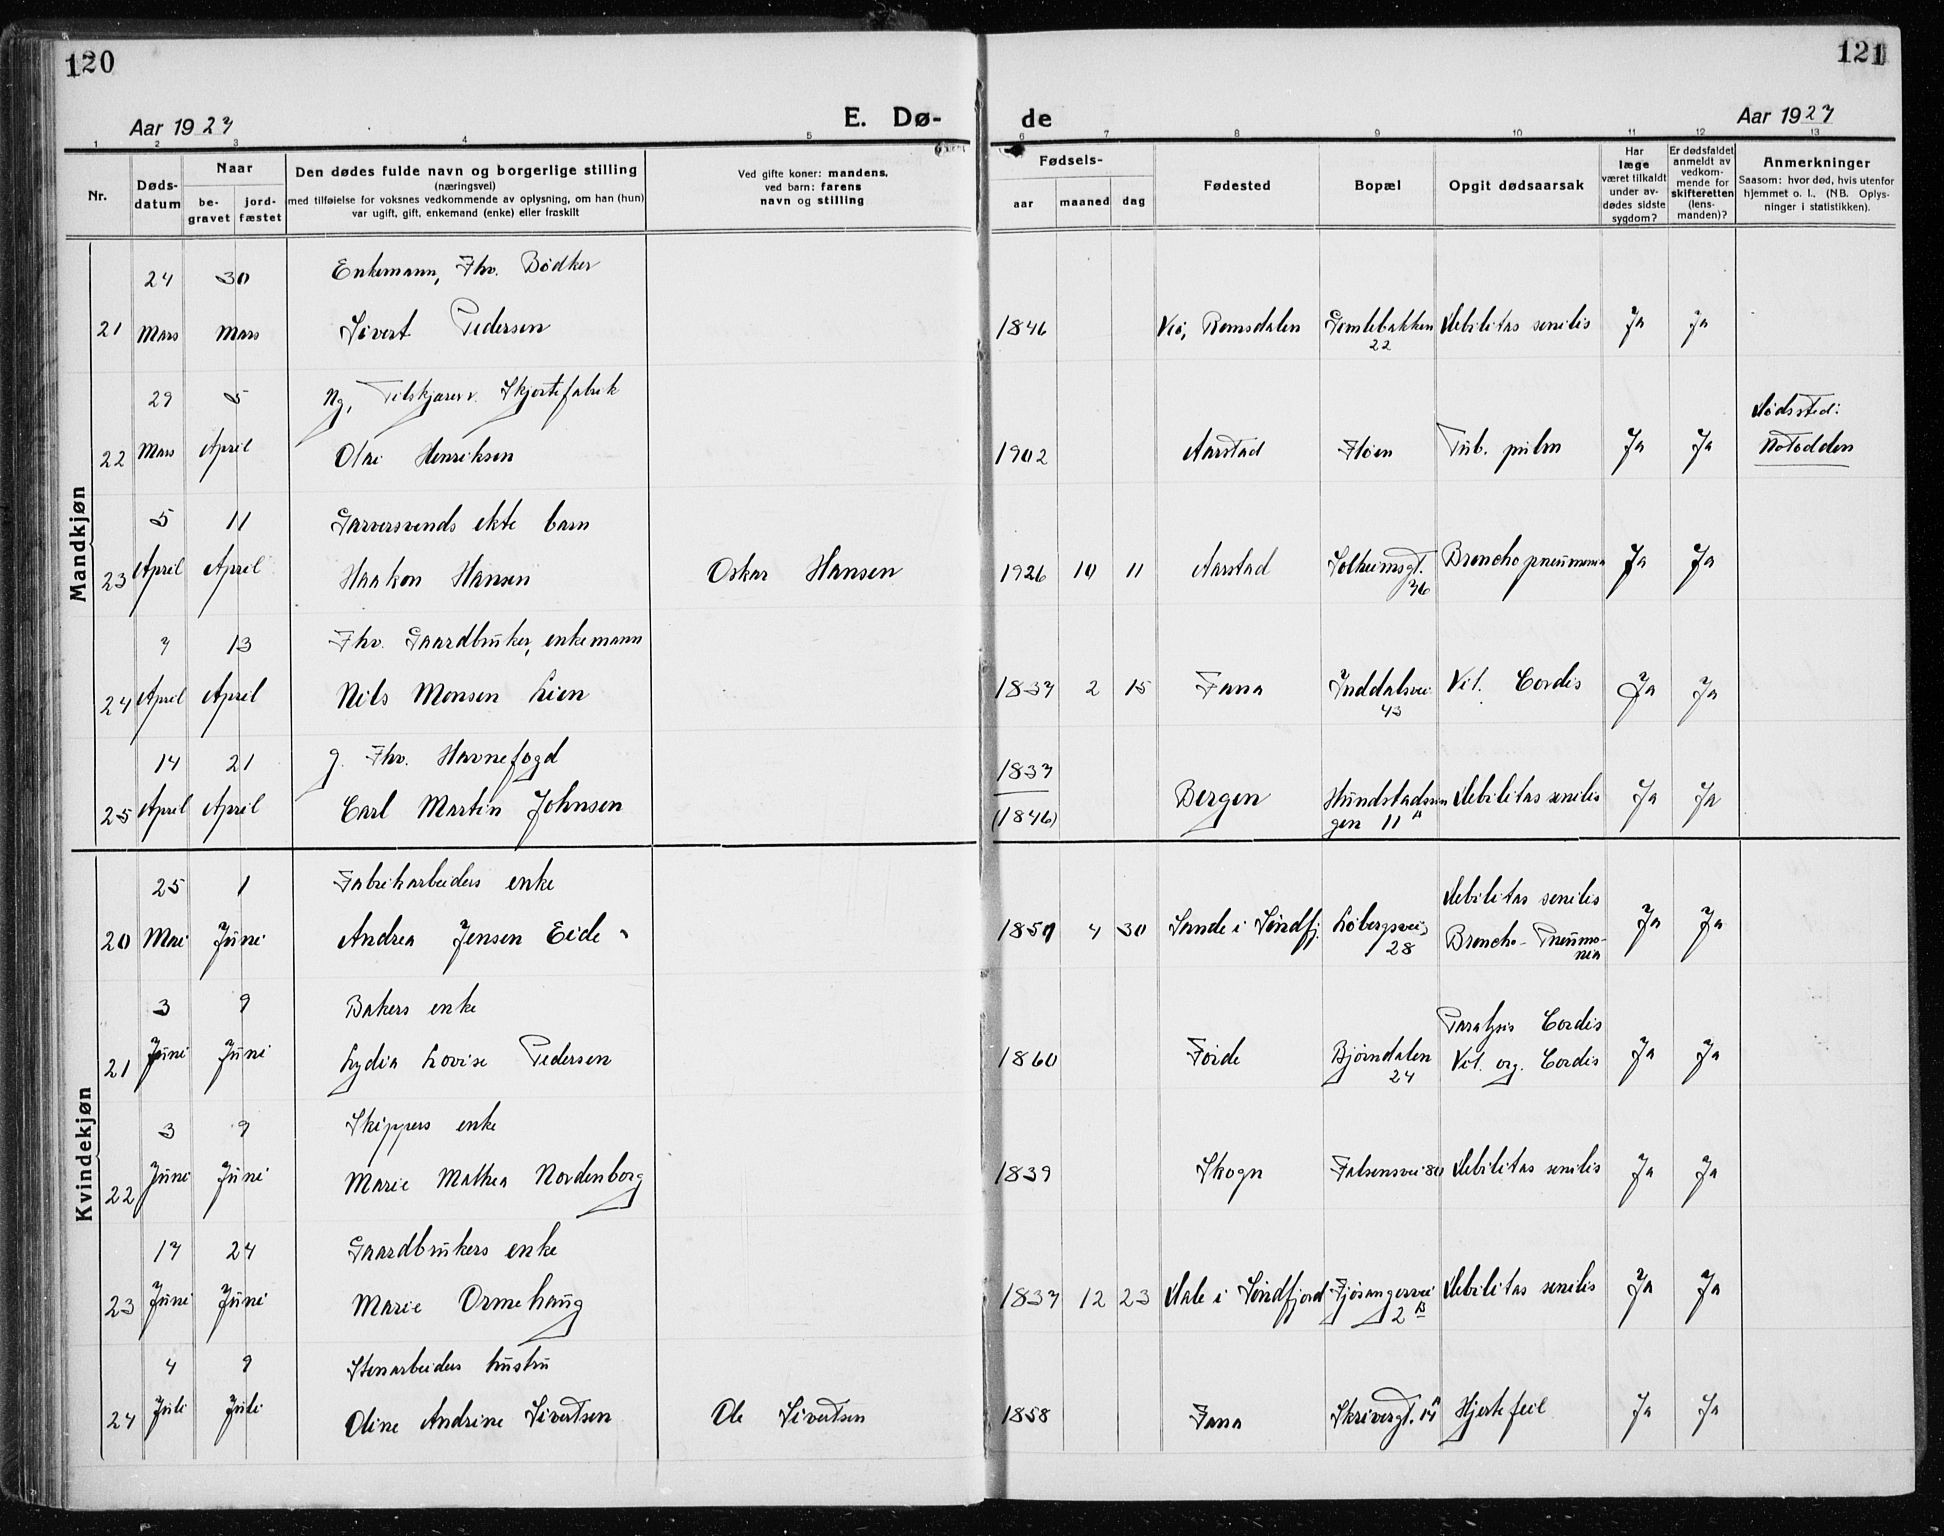 120
121
Aar 1927
E. Dø-
de
Aar 1927
1 2 3 4 5 6 7 8 9 10 11 12 13
Nr.
Døds-
datum
Naar
be-
gravet
jord-
fæstet
Den dødes fulde navn og borgerlige stilling
(næringsvei)
med tilføielse for voksnes vedkommende av oplysning, om han (hun)
var ugift, gift, enkemand (enke) eller fraskilt
Ved gifte koner: mandens,
ved barn: farens
navn og stilling
Fødsels-
aar maaned dag
Fødested
Bopæl
Opgit dødsaarsak
Har
læge
været tilkaldt
under av-
dødes sidste
sygdom?
Er dødsfaldet
anmeldt av
vedkom-
mende for
skifteretten
(lens-
manden)?
Anmerkninger
Saasom: hvor død, hvis utenfor
hjemmet o. l., (NB. Oplys-
ninger i statistikken).
Mandkjøn
24 30 Enkemann, Fhv. Bødker
21 Mars Mars Sivert Pedersen 1846 Veø, Romsdalen Gamlebakken Debilitas senilis Ja Ja
22
29 5 Ug, Tilskjærer v. Skjortefabrik Dødssted:
22 Mars April Olai Henriksen 1902 Aarstad Fløen Tub. pulm Ja Ja Notodden
5 11 Garversvends ekte barn
23 April April Haakon Hansen Oskar Hansen 1926 10 11 Aarstad Solheimsgt. Bronchopneumonia Ja Ja
36
7 13 Fhv. Gaardbruker, enkemann
24 April April Nils Monsen Lien 1837 2 15 Fana Inddalsvei Vit. Cordis Ja Ja
43
14 21 g. Fhv. Havnefogd 1837
25 April April Carl Martin Johnsen (1846) Bergen Hunstadsvin Debilitas senilis Ja Ja
gen 11 A
Kvindekjøn
25 1 Fabrikarbeiders enke Debilitas senilis
20 Mai Juni Andrea Jensen Eide 1850 4 30 Sande i Søndfj. Løbergsvei Broncho-Pneumo- Ja Ja
28 nia
3 9 Bakers enke Paralysis Cordis
21 Juni Juni Lydia Lovise Pedersen 1860 Førde Bjørndalen Vit. org. Cordis Ja Ja
24
3 9 Skippers enke
22 Juni Juni Marie Mathea Nordenborg 1839 Skogn Falsensvei Debilitas senilis Ja Ja
17 24 Gaardbrukers enke
23 Juni Juni Marie Ormehaug 1837 12 23 Dale i Søndfjord Fjøsangervei Debilitas senilis Ja Ja
2 B
4 9 Stenarbeiders hustru
24 Juli Juli Oline Andrine Sivertsen Ole Sivertsen 1858 Fana Skrivergt. 14 A Hjertefeil Ja Ja